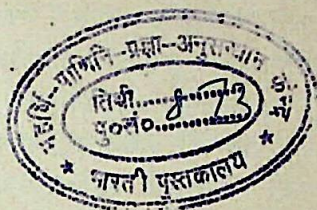 महर्षि-पाणिनि-प्रज्ञा-अनुसन्धान
तिथी........
पु०सं०........73
* भारती पुस्तकालय *